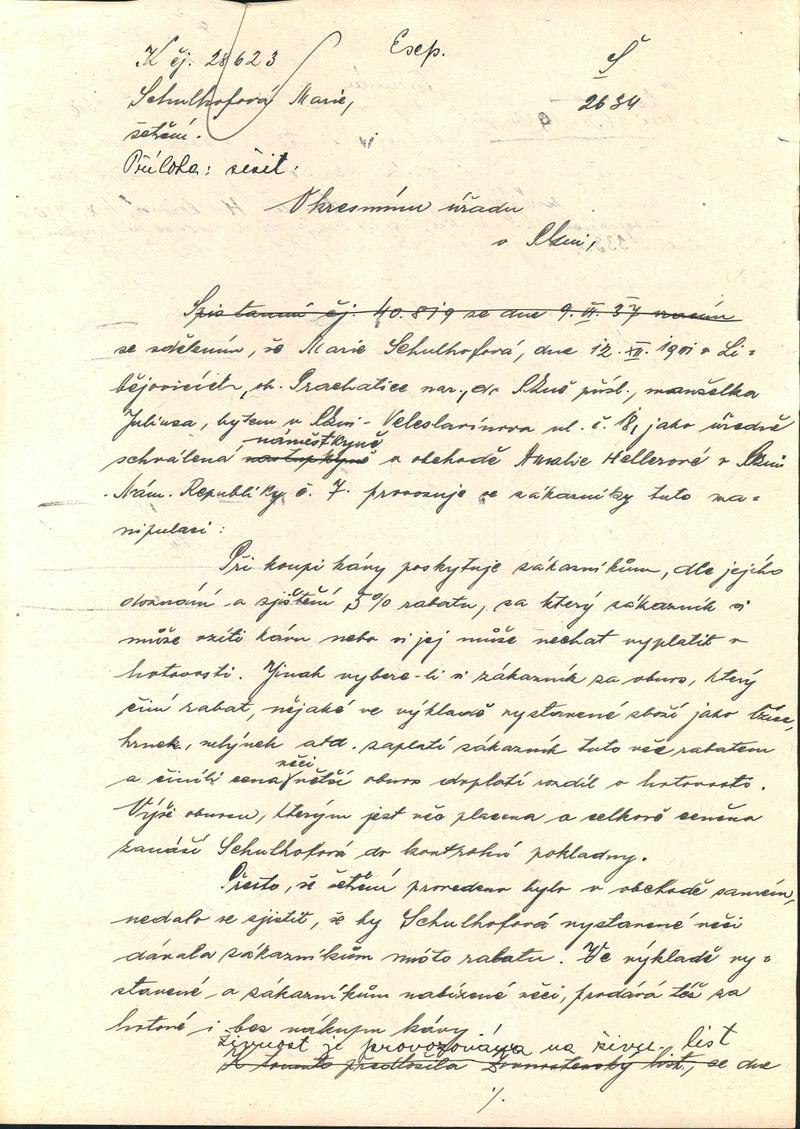 K čj. 28623
Esep.
Š
2634
Schulhofová Marie,
šetření.
Příloha: sešit:
Okresnímu úřadu
v Plzni,
Spis tamní čj. 40.819 se dne 9. II. 37 vracím
se sdělením, že Marie Schulhofová, dne 12. XII. 1901 v Li=
bějovicích, ok. Prachatice nar., do Plzně přísl., manželka
Juliusa, bytem v Plzni - Veleslavínova ul. č. 18, jako úředně
náměstkyně
schválená nástupkyně v obchodě Amalie Hellerové v Plzni
Nám. Republiky č. 7. provozuje se zákazníky tuto ma=
nipulaci:
Při koupi kávy poskytuje zákazníkům, dle jejího
doznání a zjištění 5% rabatu, za který zákazník si
může vzíti kávu nebo si jej může nechat vyplatit v
hotovosti. Jinak vybere-li si zákazník za obnos, který
činí rabat, nějaké ve výkladě vystavené zboží jako lžíce,
hrnek, mlýnek atd. zaplatí zákazník tuto věc rabatem
věci
a činili cena větší obnos doplatí rozdíl v hotovosti.
Výši obnosu, kterým jest věc placena a celkově ceněna
zanáší Schulhofová do kontrolní pokladny.
Přesto, že šetření provedeno bylo v obchodě samém,
nedalo se zjistit, že by Schulhofová vystavené věci
dávala zákazníkům místo rabatu. Ve výkladě vy=
stavené a zákazníkům nabízené věci, prodává též za
hotové i bez nákupu kávy.!
živnost je provozována na živn. list
K tomuto předložila živnostenský list, ze dne
./.